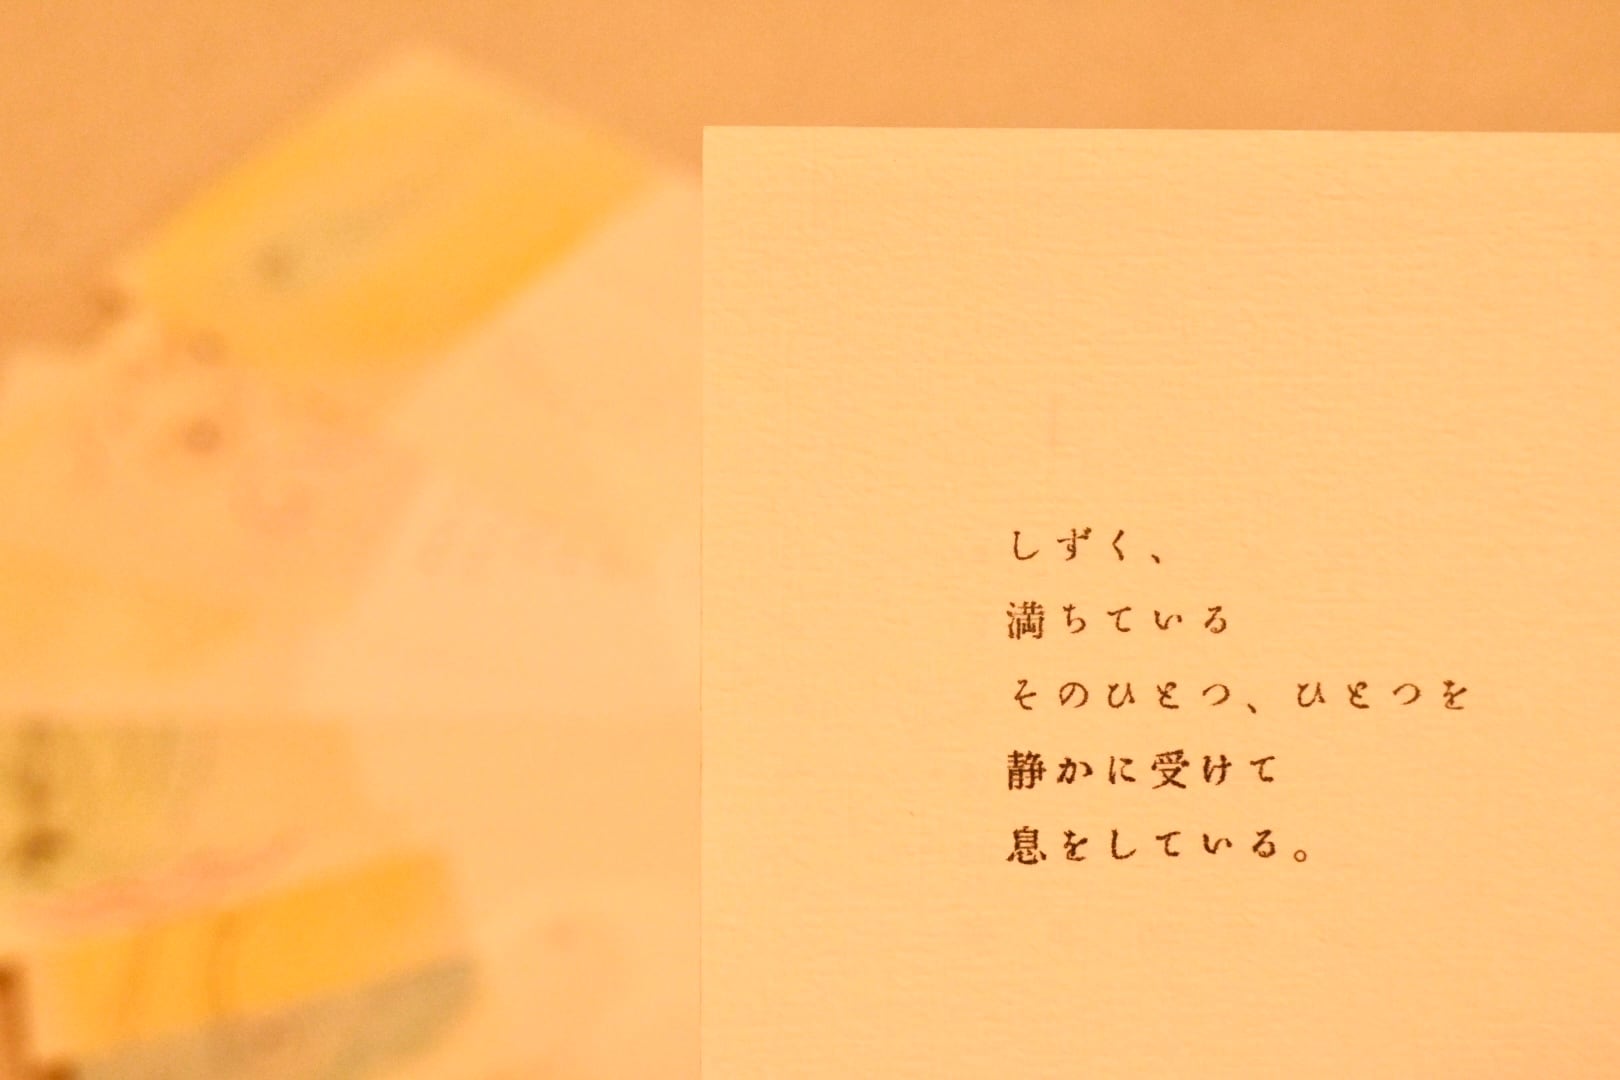 しずく、
満ちている
そのひとつ、ひとつを
静かに受けて
息をしている。